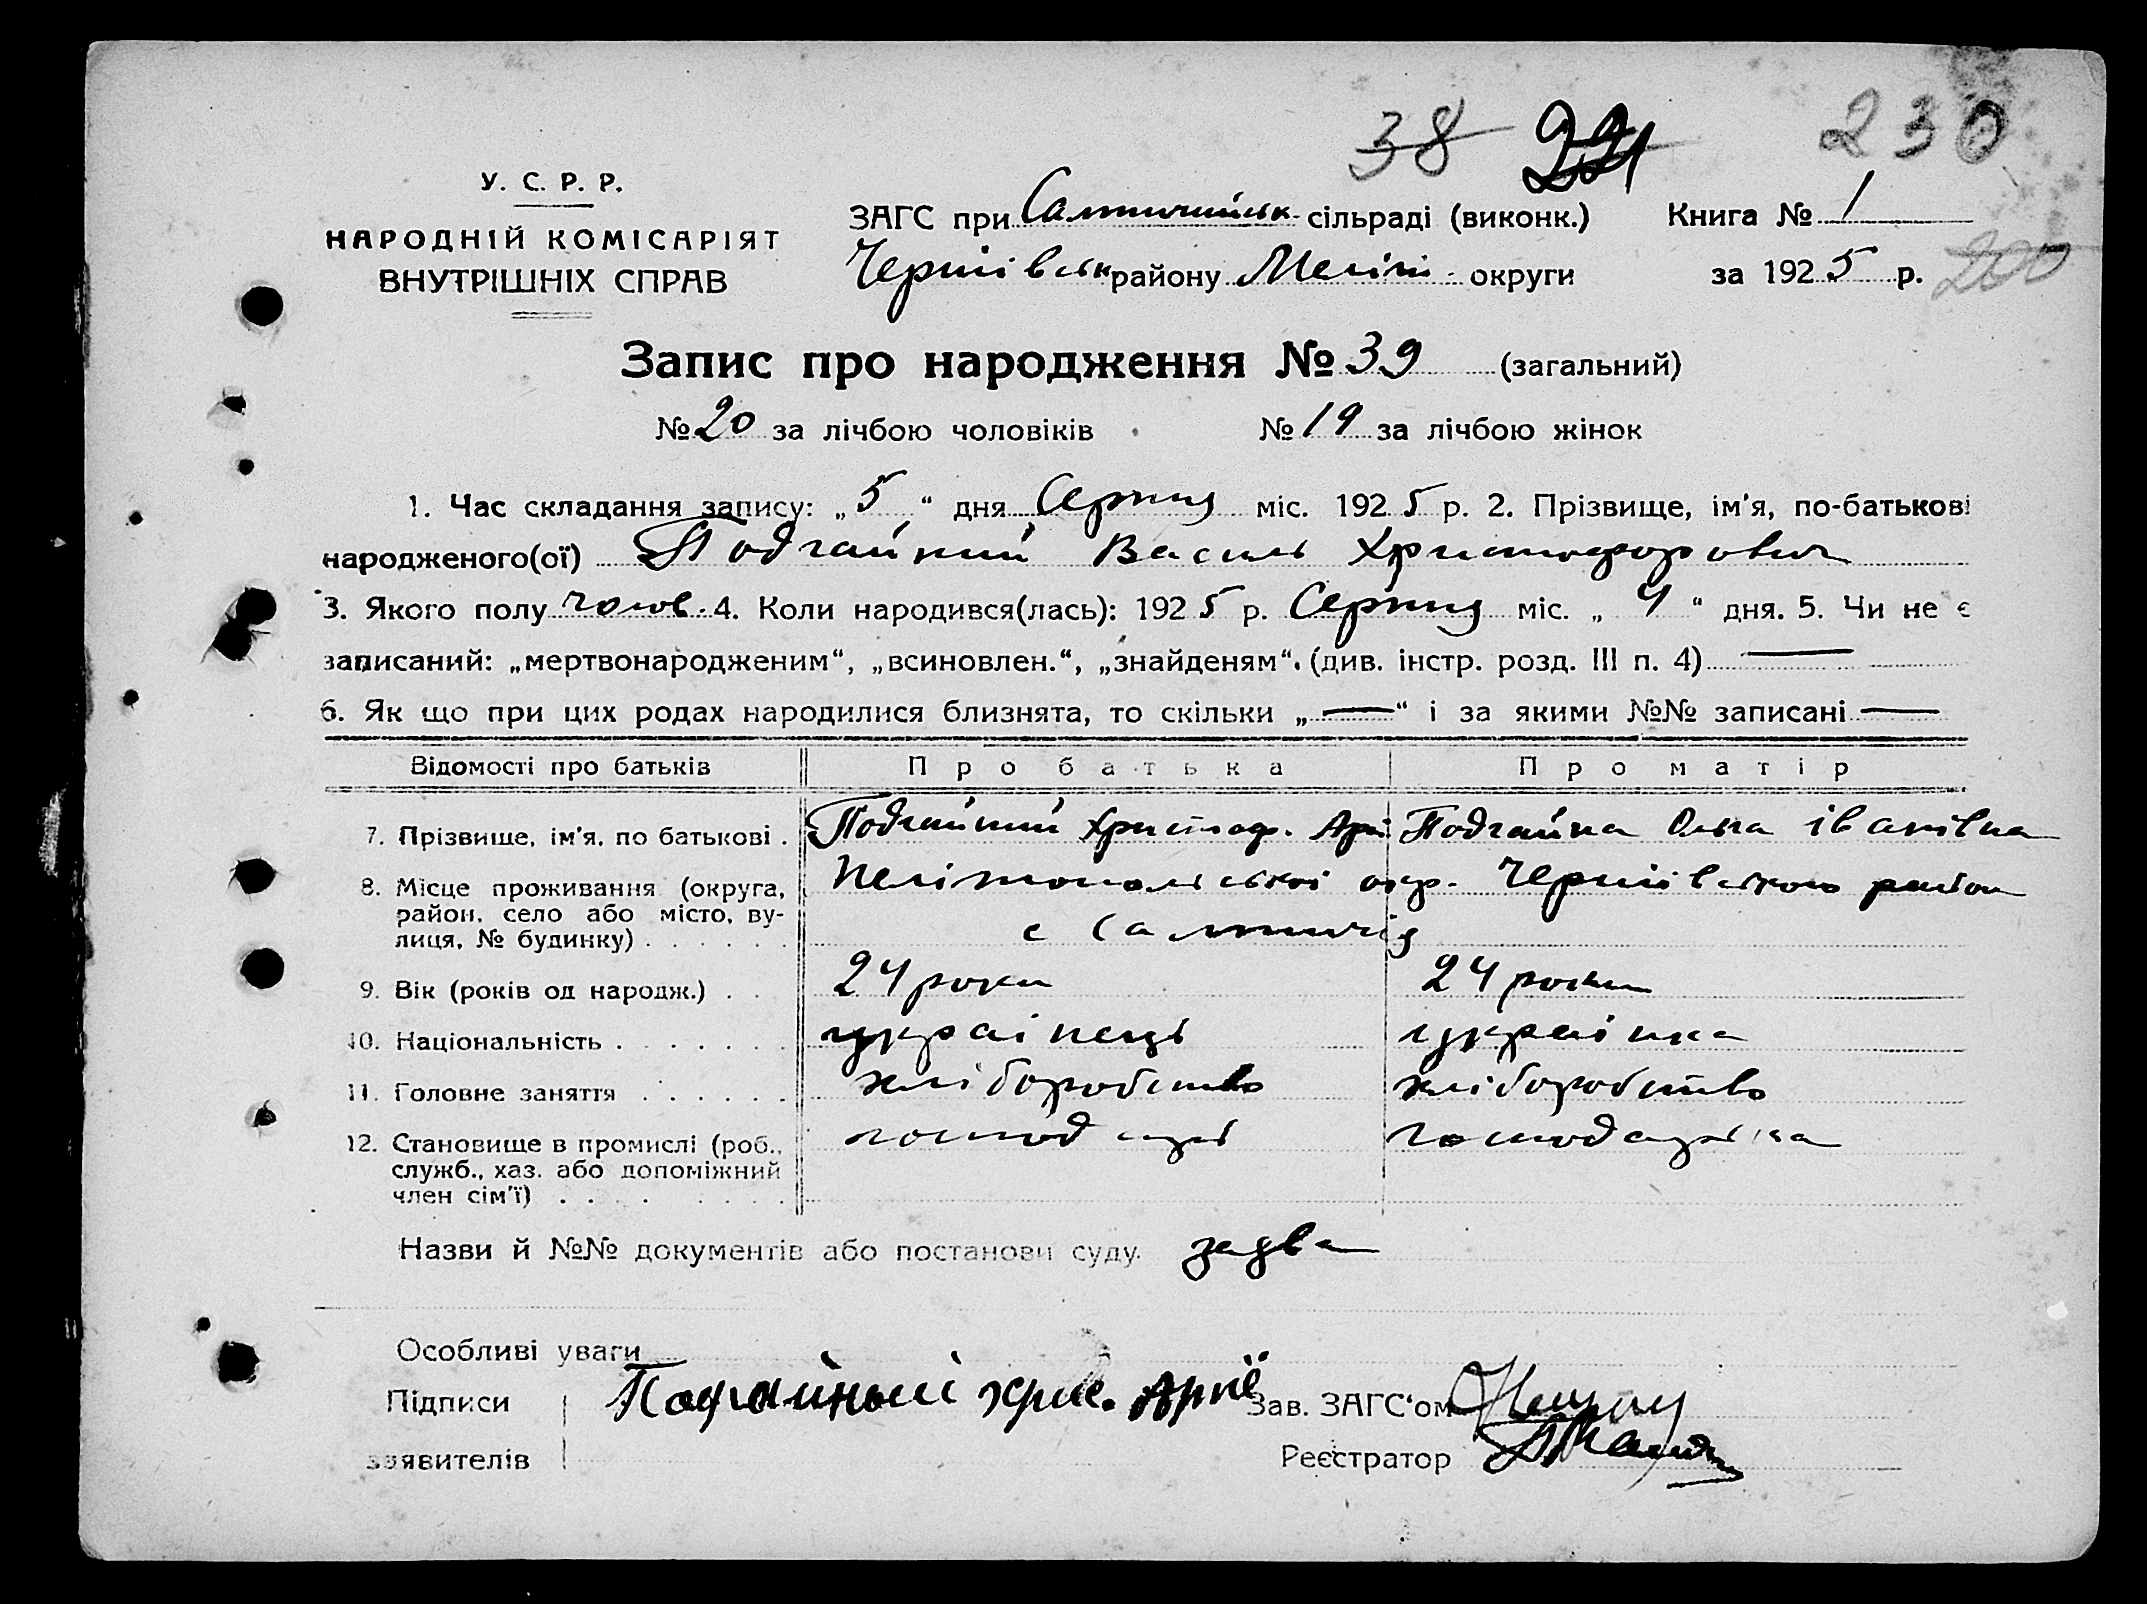 38 221 230
У. С. Р. Р.
НАРОДНІЙ КОМІСАРІЯТ
ВНУТРІШНІХ СПРАВ
ЗАГС при Салтичийськ. сільраді (виконк.) Книга № 1
Чернівськ району Меліт. округи за 1925 р. 200
Запис про народження № 39 (загальний)
№ 20 за лічбою чоловіків № 19 за лічбою жінок
1. Час складання запису: „5“ дня Серпня міс. 1925 р. 2. Прізвище, ім'я, по-батькові
народженого(ої) Подгайний Василь Христофорович
3. Якого полу чолов. 4. Коли народився(лась): 1925 р. Серпня міс. „4“ дня. 5. Чи не є
записаний: „мертвонародженим“, „всиновлен.“, „знайденям“. (див. інстр. розд. III п. 4) —
6. Як що при цих родах народилися близнята, то скільки „—“ і за якими №№ записані —
Відомості про батьків Про батька Про матір
7. Прізвище, ім'я, по батькові . Подгайний Христоф. Арі Подгайна Ольга Іванівна
8. Місце проживання (округа, Мелітопольської окр. Чернівського району
район, село або місто, ву-
лиця, № будинку) . . . . . . с Салтичія
9. Вік (років од народж.) . . 24 роки 24 роки
10. Національність . . . . . . . українець українка
11. Головне заняття . . . . . . хліборобство хліборобство
12. Становище в промислі (роб., господарь господарька
служб., хаз. або допоміжний
член сім'ї) . . . . . . . .
Назви й №№ документів або постанови суду. заява
Особливі уваги
Підписи Подгайный Хрис. Зав. ЗАГС'ом
заявителів Реєстратор